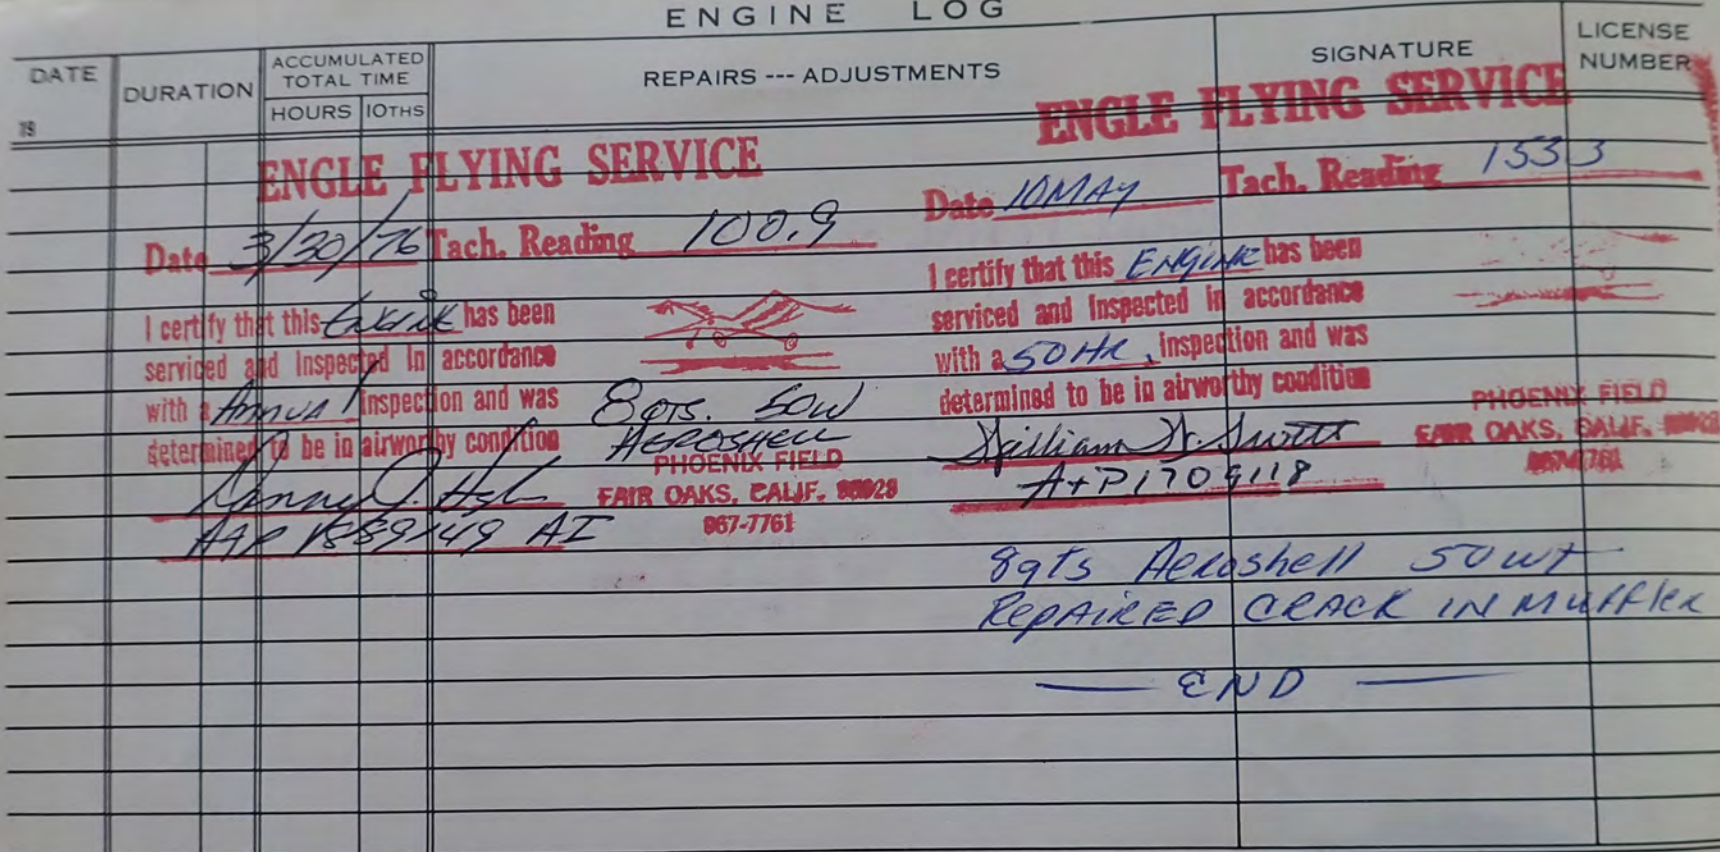 ENGINE LOG
DATE
19
DURATION
ACCUMULATED
TOTAL TIME
HOURS 10THS
REPAIRS --- ADJUSTMENTS
SIGNATURE
LICENSE
NUMBER
ENGLE FLYING SERVICE
Date 3/30/76 Tach. Reading 100.9
I certify that this ENGINE has been
serviced and Inspected in accordance
with a Annual inspection and was
determined to be in airworthy condition
8 QTS. 50W
AEROSHELL
PHOENIX FIELD
FAIR OAKS, CALIF.
967-7761
A&P 1889149 AI
ENGLE FLYING SERVICE
Date 10 MAY Tach. Reading 153 3
I certify that this ENGINE has been
serviced and Inspected in accordance
with a 50 HR. inspection and was
determined to be in airworthy condition
William
A+P1709118
PHOENIX FIELD
FAIR OAKS, CALIF.
8qts Aeroshell 50 wt
REPAIRED CRACK IN MUFFLER
— END —